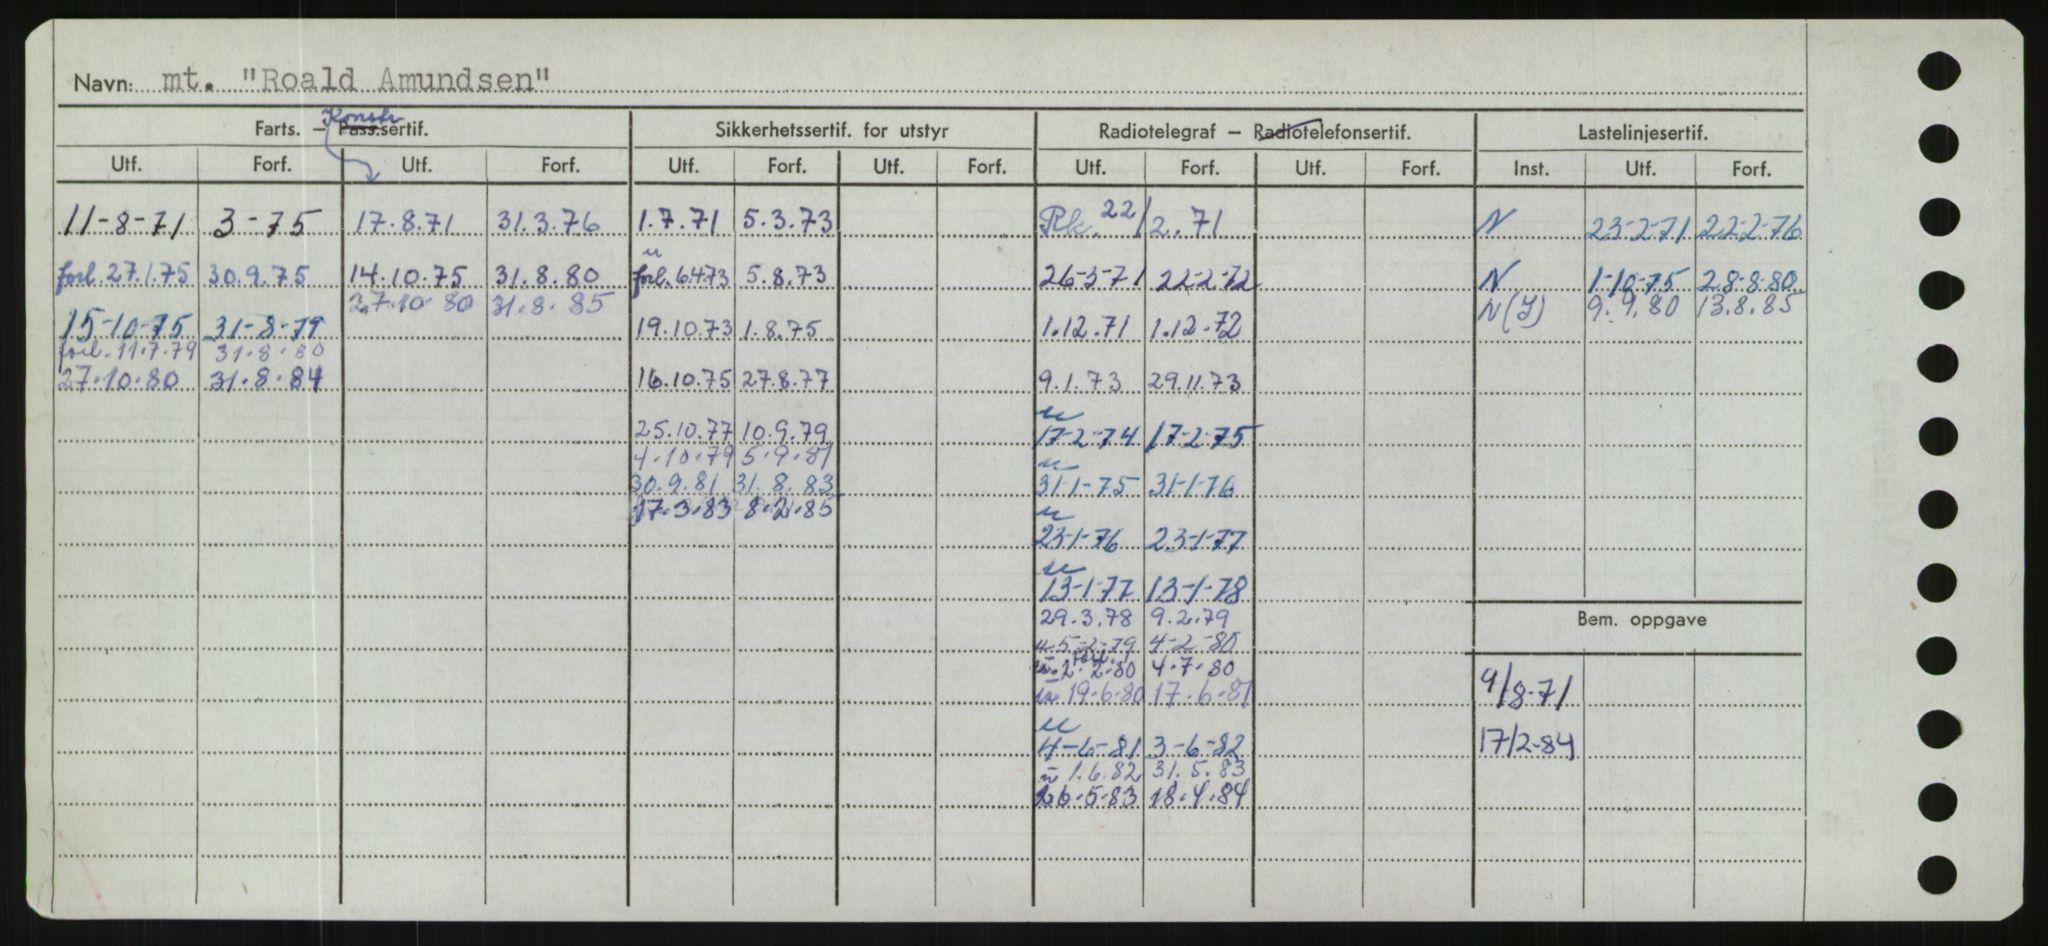 Navn: mt. "Roald Amundsen"
Konstr
Farts. — Pass.sertif. Sikkerhetssertif. for utstyr Radiotelegraf — Radiotelefonsertif. Lastelinjesertif.
Utf. Forf. Utf. Forf. Utf. Forf. Utf. Forf. Utf. Forf. Utf. Forf. Inst. Utf. Forf.
11-8-71 3-75 17.8.71 31.3.76 1.7.71 5.3.73 Rk. 22/2.71 N 23-2-71 22-2-76
u
forl. 27.1.75 30.9.75 14.10.75 31.8.80 forl. 6.4.73 5.8.73 26-3-71 22-2-72 N 1-10-75 28-8-80
27.10.80 31.8.85 N(I) 9.9.80 13.8.85
15-10-75 31-8-79 19.10.73 1.8.75 1.12.71 1.12.72
forl. 11.7.79 31.8.80
27.10.80 31.8.84 16.10.75 27.8.77 9.1.73 29.11.73
u
25.10.77 10.9.79 17-2-74 17-2-75
4.10.79 5.9.81 u
30.9.81 31.8.83 31-1-75 31-1-76
17.3.83 8.2.85 u
23-1-76 23-1-77
u
13-1-77 13-1-78
29.3.78 9.2.79
Bem. oppgave
u 5-2-79 4-2-80
forl.
u. 2.2.80 4.7.80
u 19.6.80 17.6.81 9/8-71
u
4-6-81 3-6-82 17/2-84
u 1.6.82 31.5.83
26.5.83 18.4.84